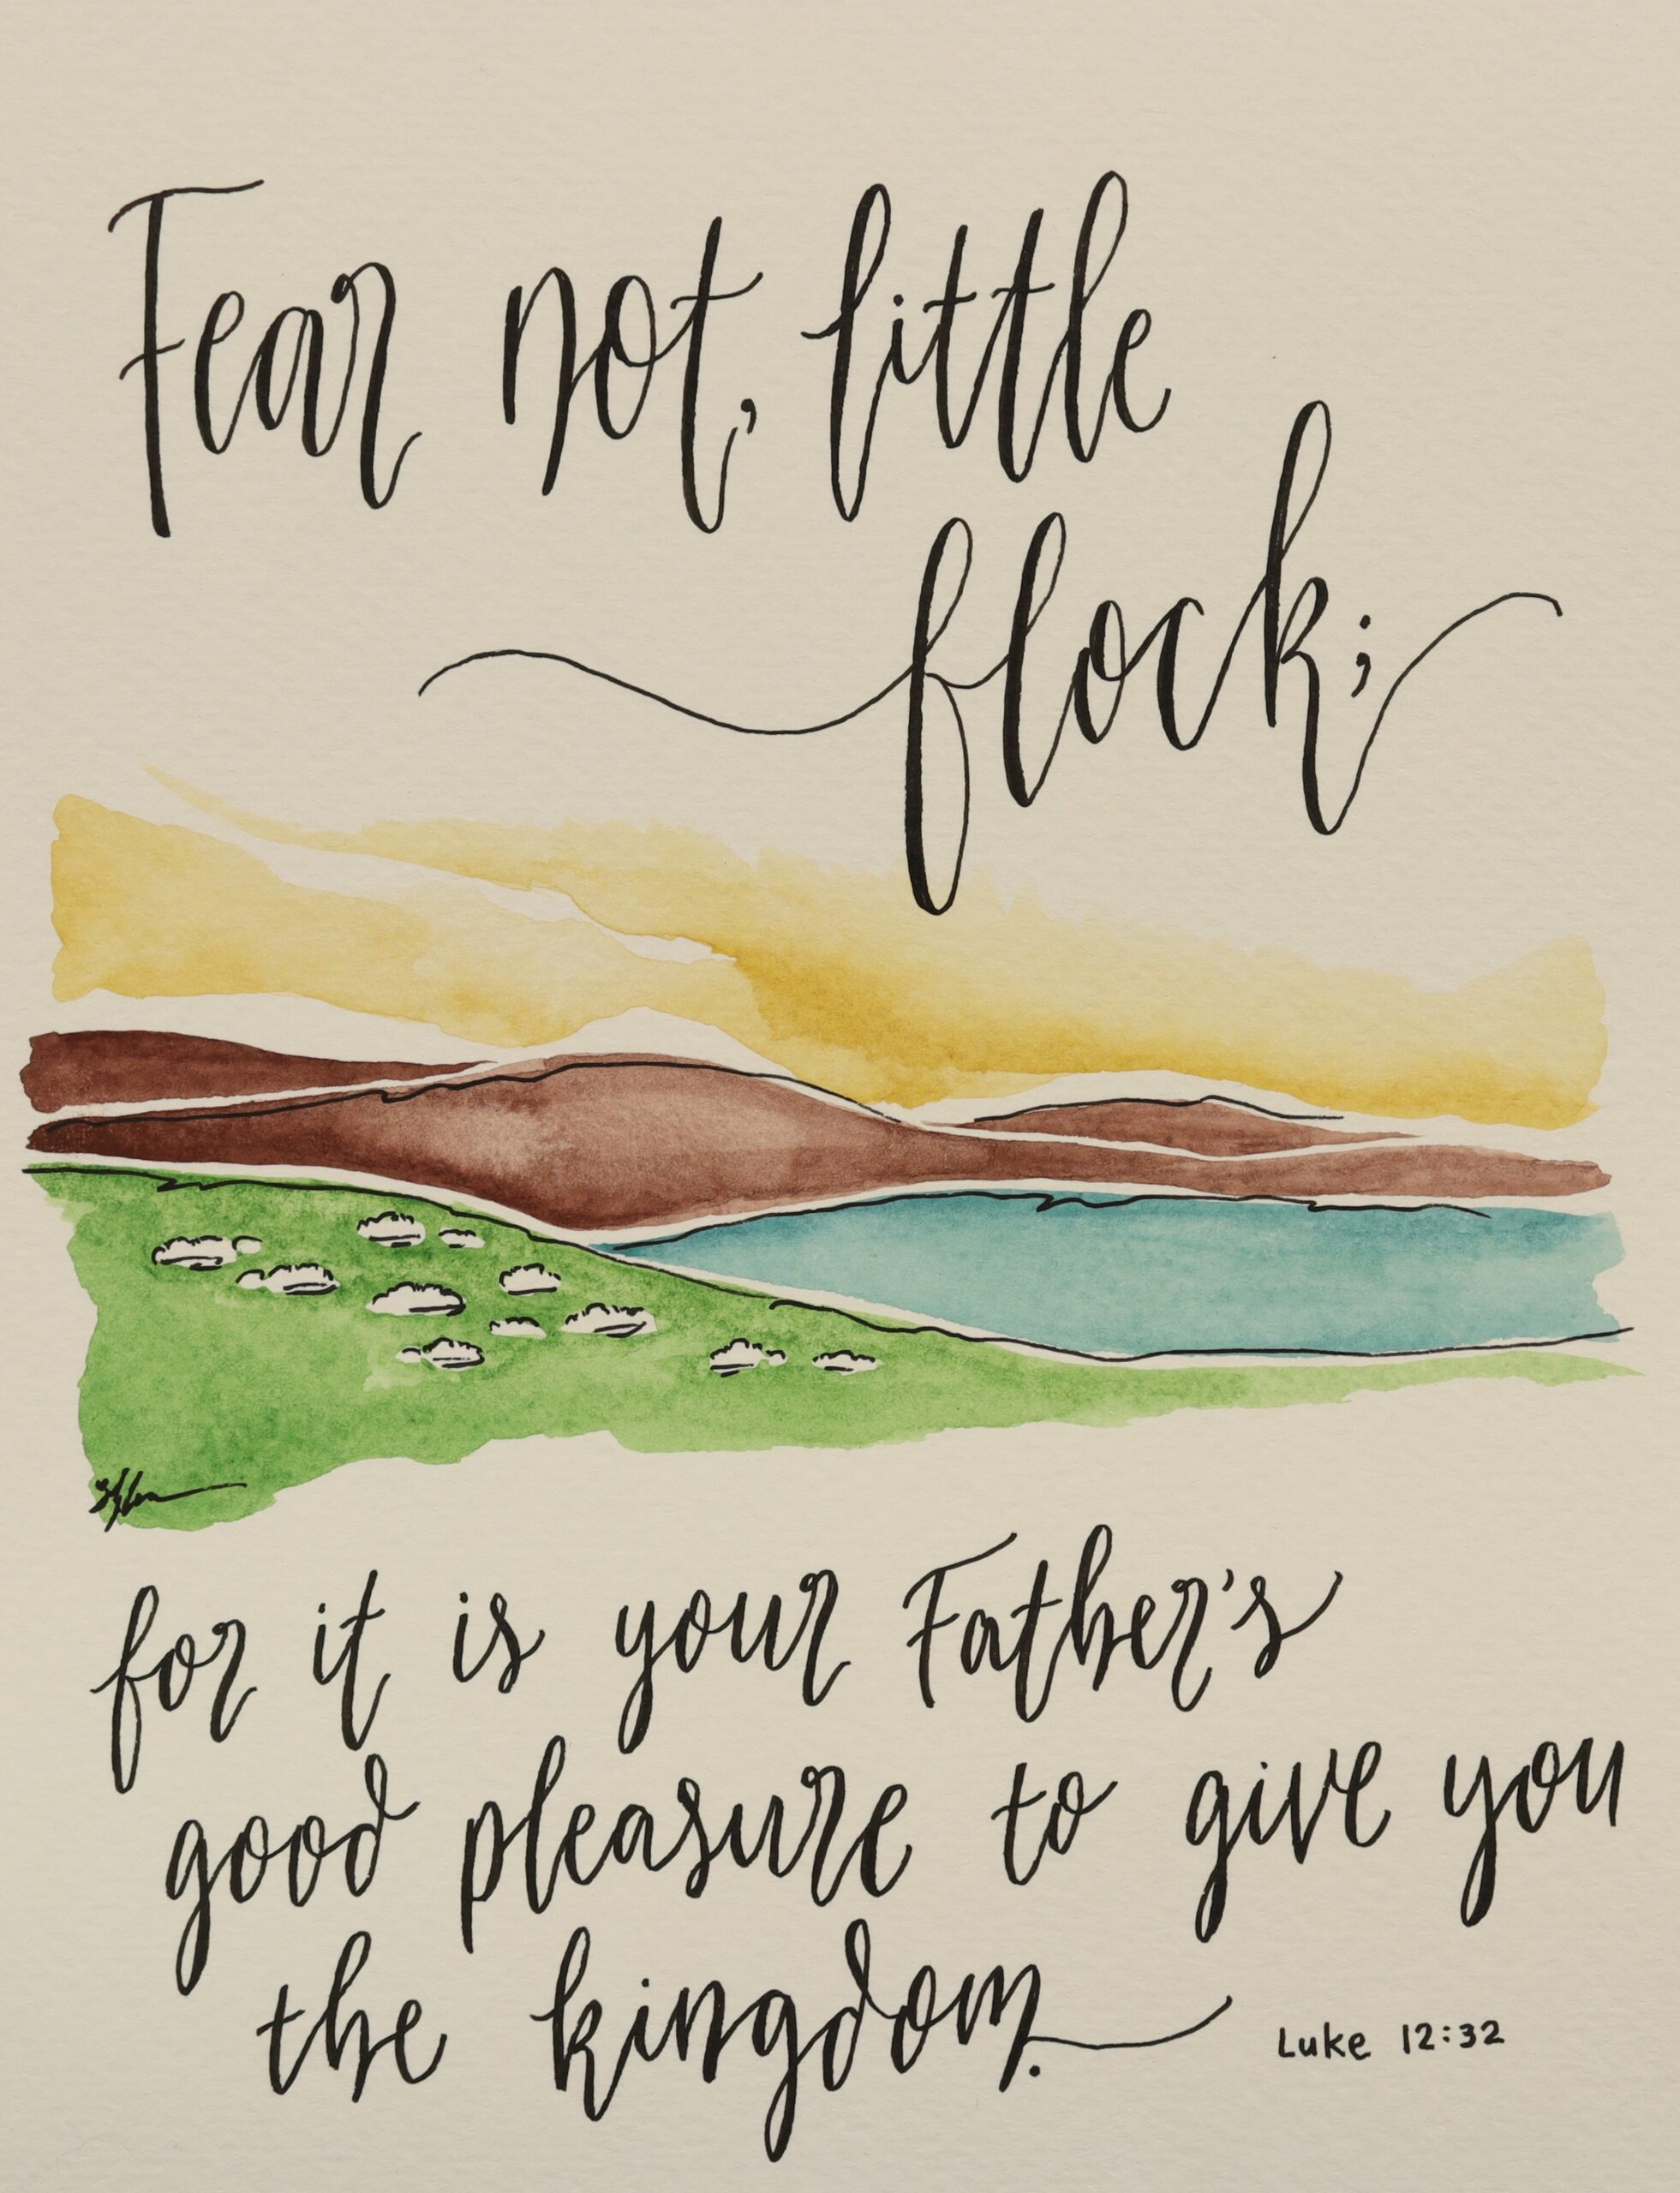 Fear not, little
flock;
for it is your Father's
good pleasure to give you
the kingdom.
Luke 12:32